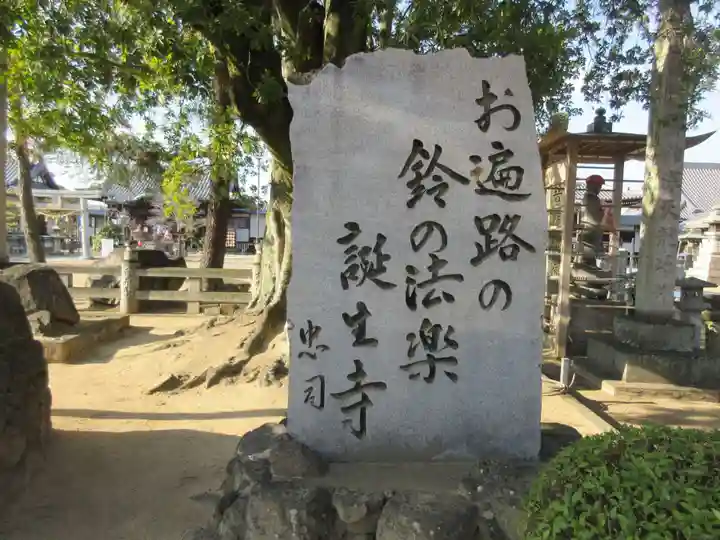 お遍路の
鈴の法楽
誕生寺
忠司